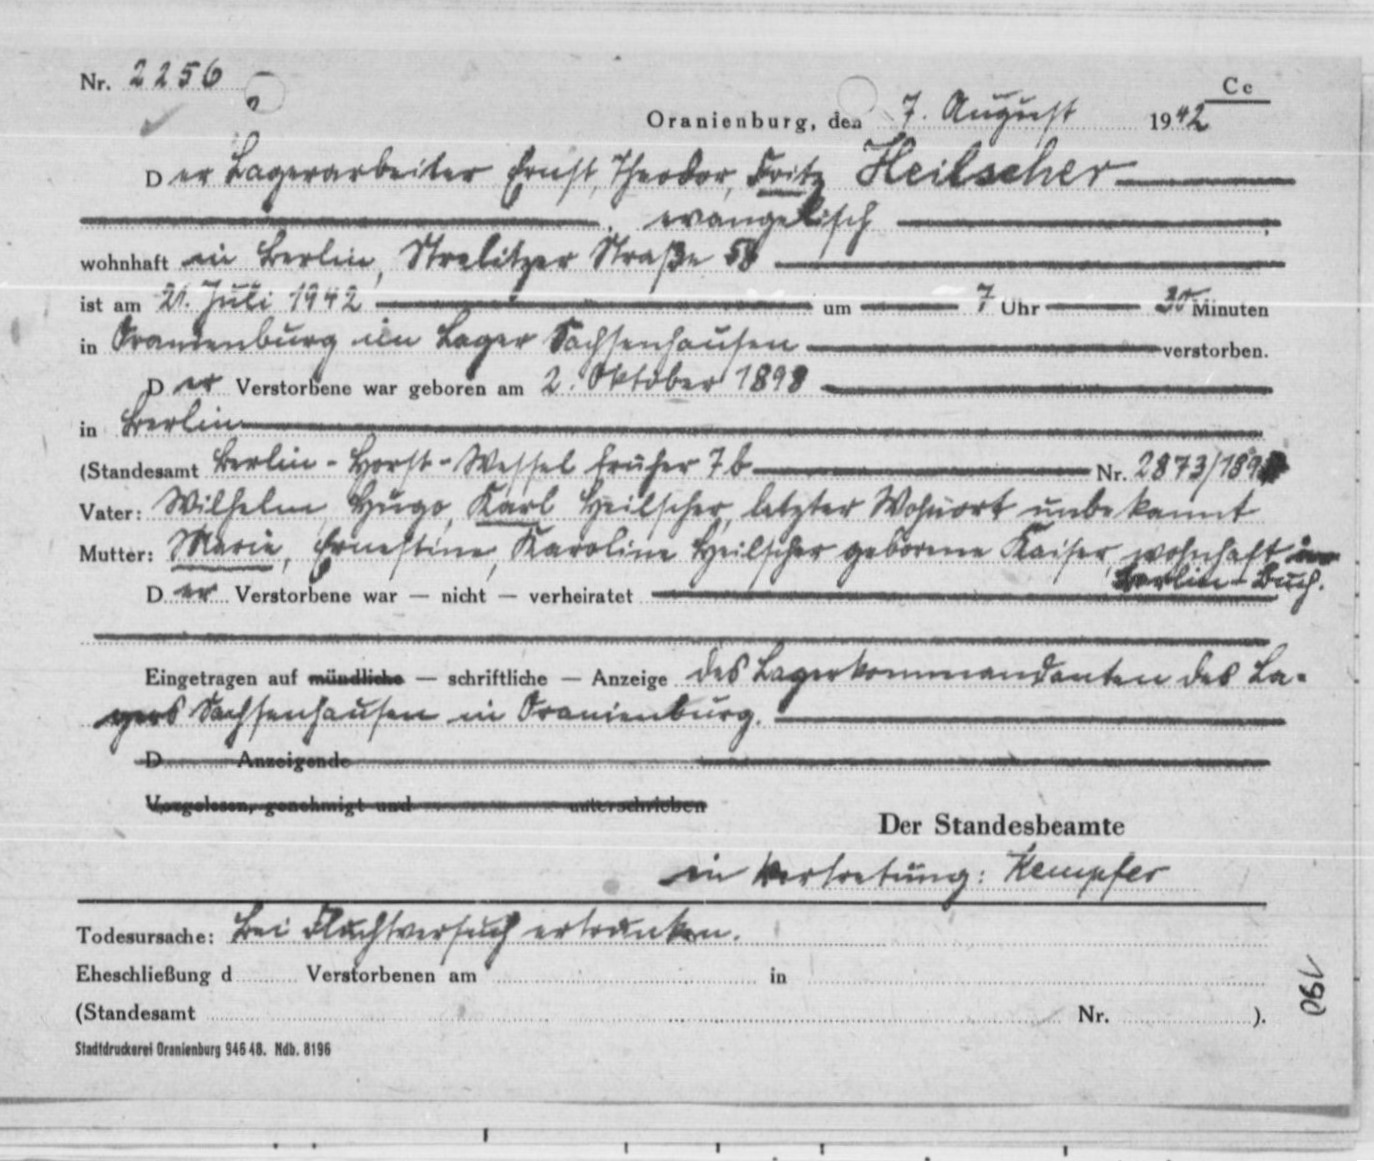 Nr. 2256
Cc
Oranienburg, den 7. August 1942
Der Lagerarbeiter Ernst, Theodor, Fritz Heilscher
evangelisch
wohnhaft in Berlin, Strelitzer Straße 58
ist am 21. Juli 1942 um 7 Uhr 30 Minuten
in Oranienburg im Lager Sachsenhausen verstorben.
Der Verstorbene war geboren am 2. Oktober 1898
in Berlin
(Standesamt Berlin - Horst-Wessel früher 7b Nr. 2873/1898
Vater: Wilhelm, Hugo, Karl Heilscher, letzter Wohnort unbekannt
Mutter: Marie, Ernestine, Karoline Heilscher geborene Kaiser, wohnhaft in
Berlin-Buch.
Der Verstorbene war — nicht — verheiratet
Eingetragen auf mündliche — schriftliche — Anzeige des Lagerkommandanten des La-
gers Sachsenhausen in Oranienburg.
D Anzeigende
Vorgelesen, genehmigt und unterschrieben
Der Standesbeamte
in Vertretung: Kempfer
Todesursache: Bei Fluchtversuch ertrunken.
Eheschließung d Verstorbenen am in
(Standesamt Nr. ).
Stadtdruckerei Oranienburg 946 48. Ndb. 8196
190